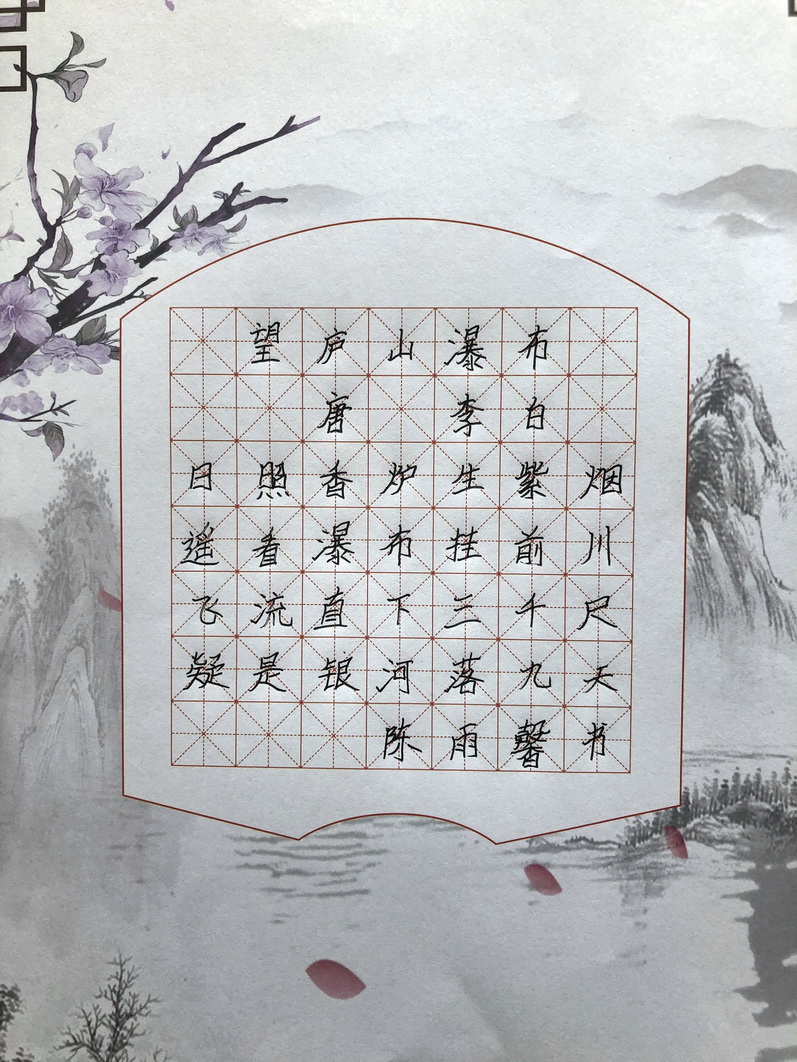 望庐山瀑布
唐 李白
日照香炉生紫烟
遥看瀑布挂前川
飞流直下三千尺
疑是银河落九天
陈雨馨书